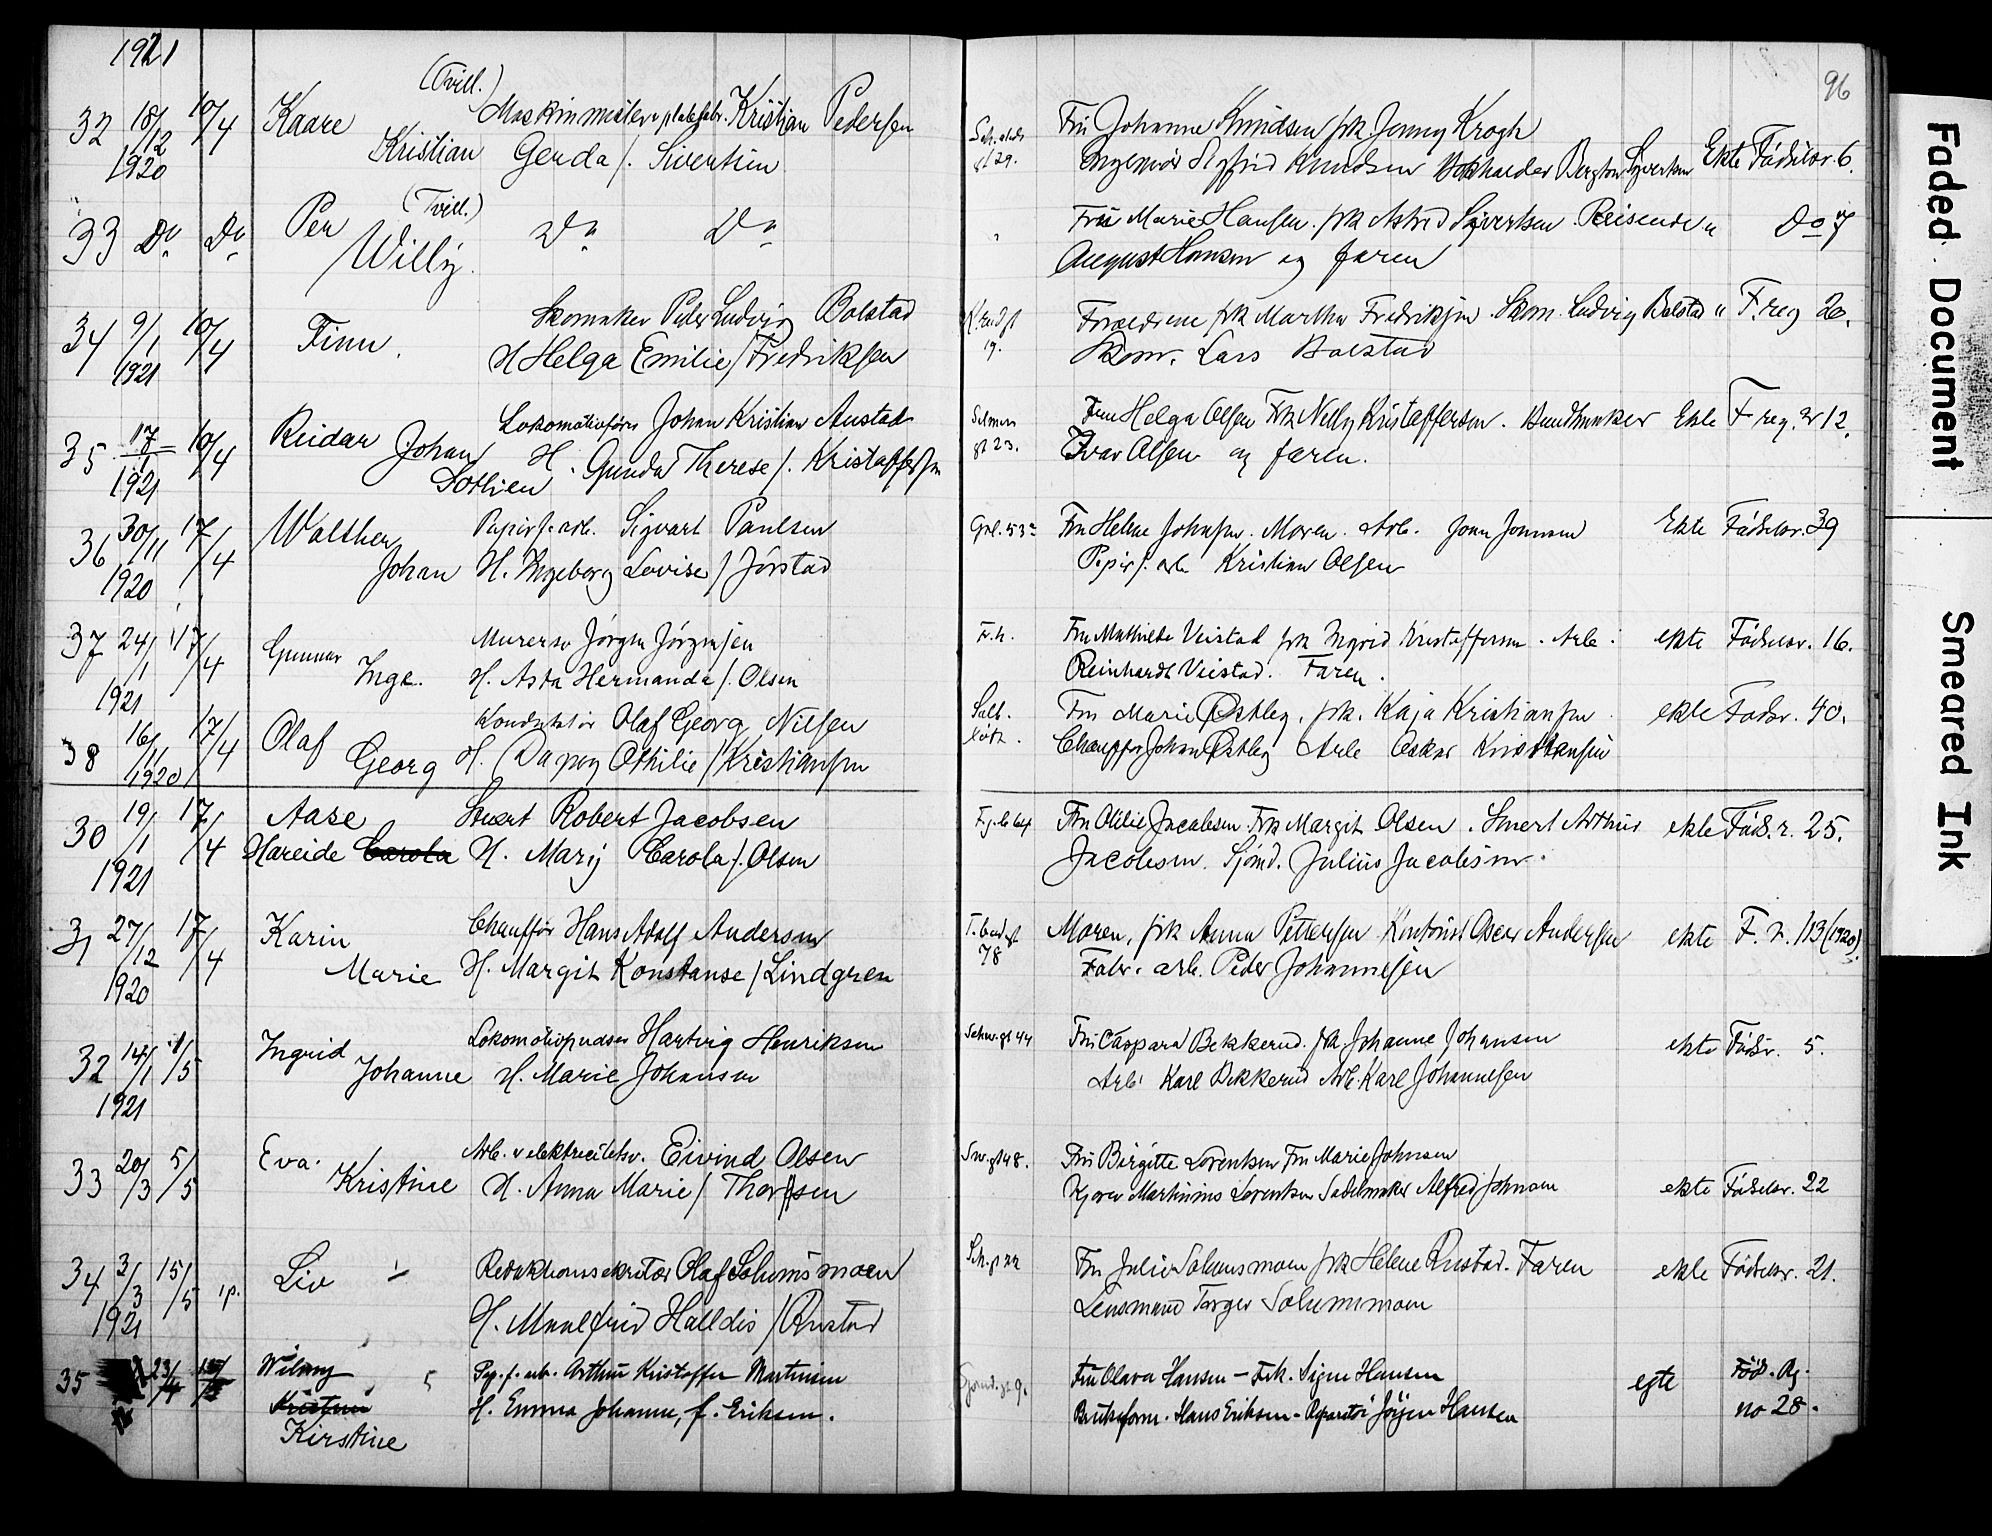 1921
96
(Tvill.)
32 18/12 10/4 Kaare Maskinmester v platefabr. Kristian Pedersen Fru Johanne Knudsen frk. Jenny Krogh
1920 Kristian Gerda f. Sivertsen gt 29. Ingeniør Sigfrid Knudsen Bokholder Sivertsen Ekte Fødselsr. 6.
(Tvill.)
33 Do Do Per Do Do Fru Marie Hansen. frk Astrid Sivertsen Reisende " Do 7
Willy. " August Hansen og faren
34 9/1 10/4 Finn. Skomaker Peder Ludvig Bolstad Forældrene frk Martha Fredriksen. Skom. Ludvig Bolstad " F. reg 20.
1921 H Helga Emilie f Fredriksen 19. Skom. Lars Bolstad
35 17/1 10/4 Reidar Johan Lokomotivfører Johan Kristian Austad Fru Helga Olsen Frk Nelly Kristoffersen. Bundtmaker Ekte F reg. nr 12.
1921 H. Gunda Therese f. Kristoffersen gt 23. Ivar Olsen og faren.
36 30/11 17/4 Walther Papirf. arb. Sigvart Paulsen Grl. 53 Fru Helene Johnsen. Moren. Arb. Ekte Fødselsr. 39
1920 Johan H. Ingeborg Lovise f Jørstad Papirf. arb. Kristian Olsen
37 24/1 17/4 Gunnar Murersv Jørgen Jørgensen Fru Mathilde Veistad frk Ingrid Kristoffersen. Arb. ekte Fødselsr. 16.
1921 Inge. H. Asta Hermanda f. Olsen Reinhardt Veistad. Faren.
38 16/11 17/4 Olaf Konduktør Olaf Georg Nilsen Fru Marie Østby, frk. Kaja Kristiansen ekte Fødsr. 40.
1920 Georg H. Dagny Othilie f Kristiansen Chauffør Johan Østby Arb Oskar Kristiansen
30 19/1 17/4 Aase Robert Jacobsen Fru Otilie Jacobsen. Frk Margit Olsen. Arthur ekte Føds. r. 25.
1921 Hareide Carola H. Mary Carola f. Olsen Jacobsen. Sjømd. Julius Jacobsen.
31 27/12 17/4 Karin Chauffør Hans Adolf Andersen Moren, frk Anna Pettersen Kontorist Oscar Andersen ekte F. r. 113 (1920).
1920 Marie H. Margit Konstanse f Lindgren 78 Fabr. arb. Peder Johannesen
32 14/1 1/5 Ingrid Lokomotivpudser Hartvig Henriksen Schw. gt 44 Fru Caspara Bekkerud. frk Johanne Johansen ekte Fødsr. 5.
1921 Johanne H. Marie Johansen Arb. Karl Bekkerud Arb. Karl Johannesen
33 20/3 5/5 Eva. Arb. v elektricitetsv. Eivind Olsen gt 48. Fru Birgitte Lorentsen Fru Marie Johnsen
Kristine H. Anna Marie f Thorsen Kjører Martinius Lorentsen Sadelmaker Alfred Johnsen ekte Fødselsr. 22
34 3/3 15/5 ip. Liv Redaktionssekretær Olaf Solumsmoen Fru Julie Solumsmoen frk Helene Rustad. Faren ekte Fødselsr. 21.
1921 H. Maalfrid Halldis f Rustad Lensmand Torger Solumsmoen
35 23/4 Wilmy Pap. f. arb. Arthur Kristoffer Martinsen Fru Olava Hansen - Frk. Signe Hansen egte Fød. Rg.
Kristine H. Emma Johanne, f. Eriksen. Bruksform. Hans Eriksen - Reparatør Jörgen Hansen no 28.
Kirstine
Faded Document
Smeared Ink